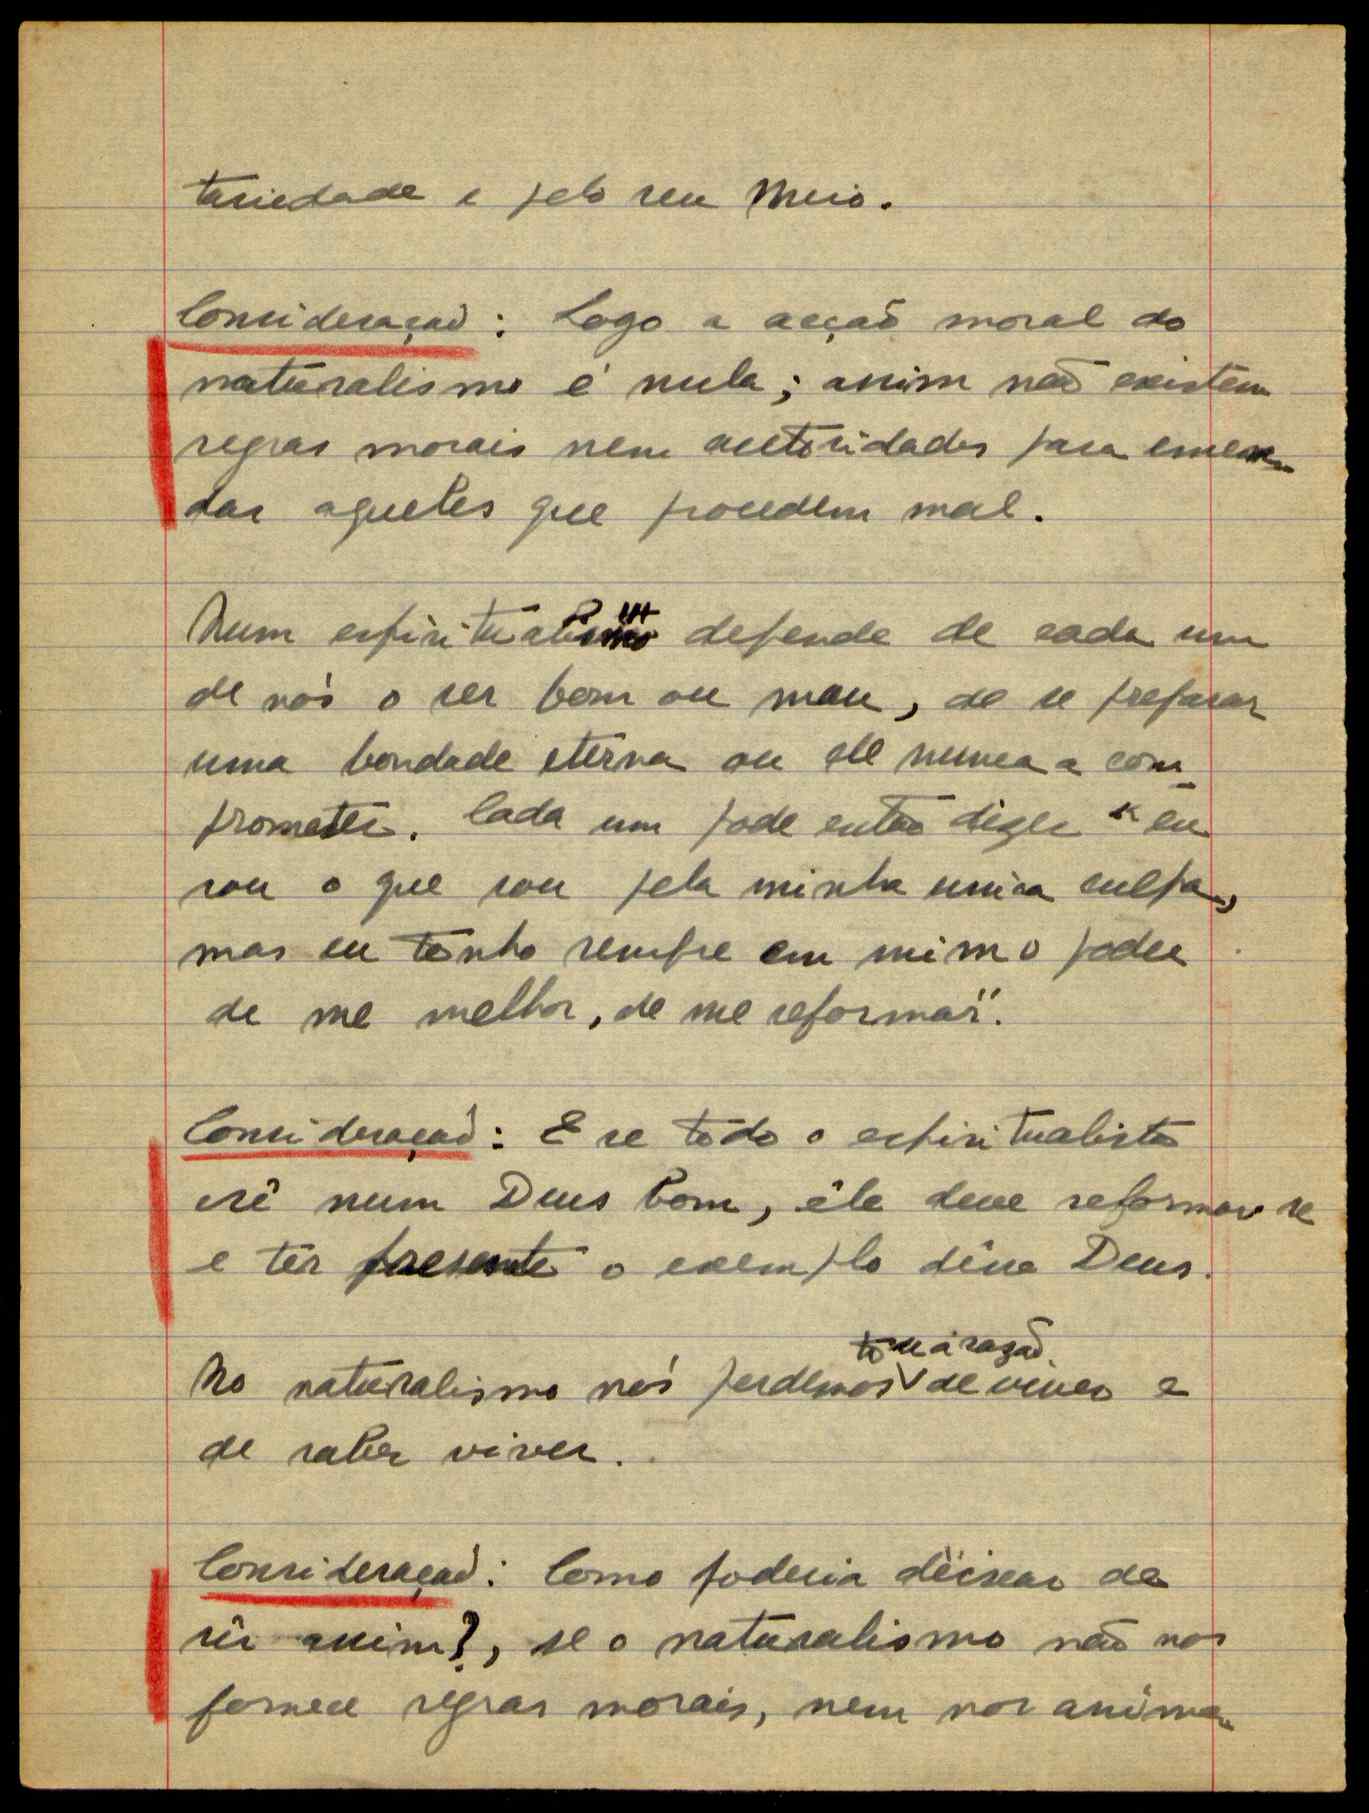 tariedade e pelo seu Meio.
Consideração: Logo a acção moral do
naturalismo é nula; assim não existem
regras morais nem autoridades para emen-
dar aqueles que procedem mal.
Num espiritualismo depende de cada um
de nós o ser bom ou mau, de se preparar
uma bondade eterna ou de nunca a com-
prometer. Cada um pode então dizer "eu
sou o que sou pela minha unica culpa,
mas eu tenho sempre em mim o poder
de me melhor, de me reformar".
Consideração: E se todo o espiritualista
crê num Deus bom, êle deve reformar se
e ter presente o exemplo dêsse Deus.
a razão
No naturalismo nós perdemos de viver e
de saber viver.
Consideração: Como poderia deixar de
sêr assim?, se o naturalismo não nos
fornece regras morais, nem nos anima